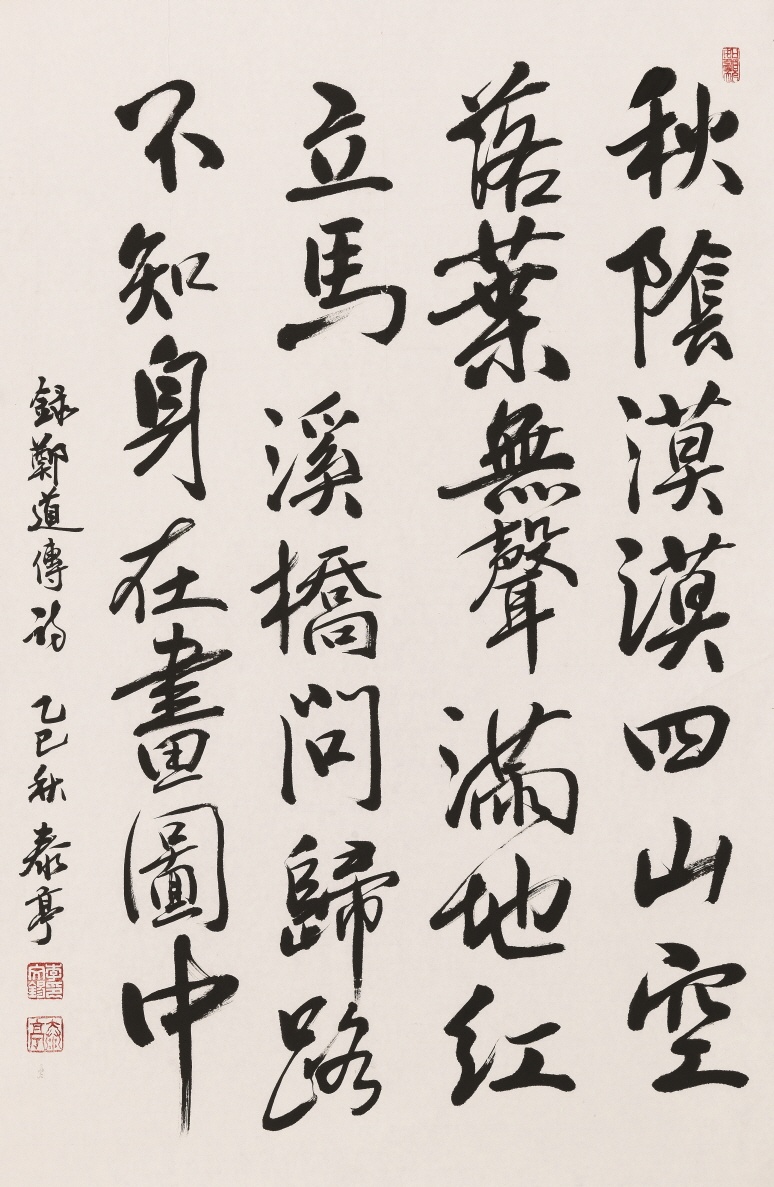 秋陰漠漠四山空
落葉無聲滿地紅
立馬溪橋問歸路
不知身在畫圖中
録鄭道傳詩 乙巳秋 泰亭